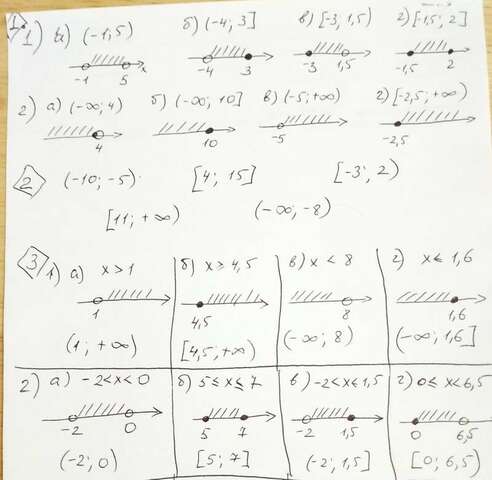 1) 1) а) (-1; 5) б) (-4; 3] в) [-3; 1,5) г) [-1,5; 2]
-1 5 x -4 3 -3 1,5 -1,5 2
2) а) (-∞; 4) б) (-∞; 10] в) (-5; +∞) г) [-2,5; +∞)
4 10 -5 -2,5
2 (-10; -5) [4; 15] [-3; 2)
[11; +∞) (-∞; -8)
3 1) а) x > 1 б) x ≥ 4,5 в) x < 8 г) x ≤ 1,6
1 4,5 8 1,6
(1; +∞) [4,5; +∞) (-∞; 8) (-∞; 1,6]
2) а) -2 < x < 0 б) 5 ≤ x ≤ 7 в) -2 < x ≤ 1,5 г) 0 ≤ x < 6,5
-2 0 5 7 -2 1,5 0 6,5
(-2; 0) [5; 7] (-2; 1,5] [0; 6,5)